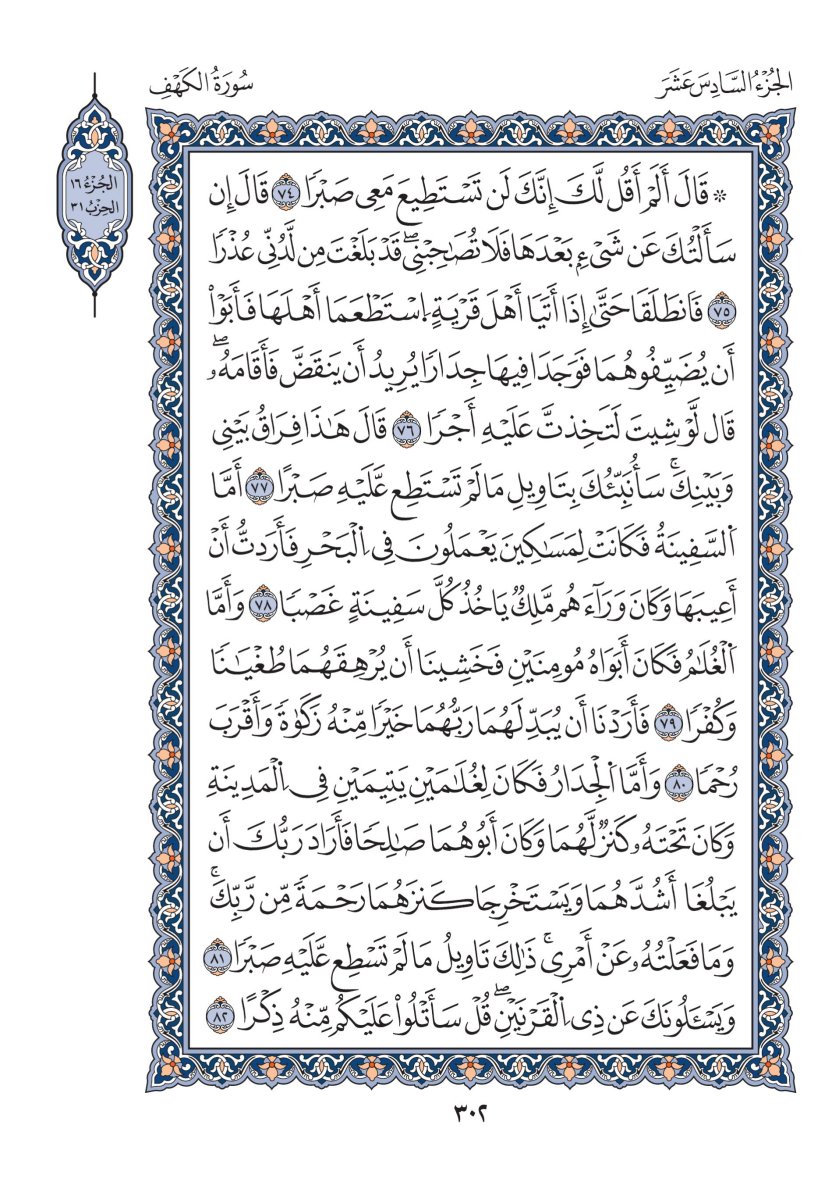 الجُزْءُ السَّادِسَ عَشَرَ
سُورَةُ الكَهْفِ
الجُزْءُ ١٦
الحِزْبُ ٣١
۞ قَالَ أَلَمْ أَقُل لَّكَ إِنَّكَ لَن تَسْتَطِيعَ مَعِى صَبْرًا ٧٤ قَالَ إِن
سَأَلْتُكَ عَن شَىْءٍ بَعْدَهَا فَلَا تُصَٰحِبْنِىۖ قَدْ بَلَغْتَ مِن لَّدُنِّى عُذْرًا
٧٥ فَٱنطَلَقَا حَتَّىٰ إِذَا أَتَيَا أَهْلَ قَرْيَةٍ ٱسْتَطْعَمَا أَهْلَهَا فَأَبَوْا۟
أَن يُضَيِّفُوهُمَا فَوَجَدَا فِيهَا جِدَارًا يُرِيدُ أَن يَنقَضَّ فَأَقَامَهُۥۖ
قَال لَّوْ شِيتَ لَتَخِذتَّ عَلَيْهِ أَجْرًا ٧٦ قَالَ هَٰذَا فِرَاقُ بَيْنِى
وَبَيْنِكَۚ سَأُنَبِّئُكَ بِتَاوِيلِ مَا لَمْ تَسْتَطِع عَّلَيْهِ صَبْرًا ٧٧ أَمَّا
ٱلسَّفِينَةُ فَكَانَتْ لِمَسَٰكِينَ يَعْمَلُونَ فِى ٱلْبَحْرِ فَأَرَدتُّ أَنْ
أَعِيبَهَا وَكَانَ وَرَآءَهُم مَّلِكٌ يَاخُذُ كُلَّ سَفِينَةٍ غَصْبًا ٧٨ وَأَمَّا
ٱلْغُلَٰمُ فَكَانَ أَبَوَاهُ مُومِنَيْنِ فَخَشِينَا أَن يُرْهِقَهُمَا طُغْيَٰنًا
وَكُفْرًا ٧٩ فَأَرَدْنَا أَن يُبَدِّلَهُمَا رَبُّهُمَا خَيْرًا مِّنْهُ زَكَوٰةً وَأَقْرَبَ
رُحْمًا ٨٠ وَأَمَّا ٱلْجِدَارُ فَكَانَ لِغُلَٰمَيْنِ يَتِيمَيْنِ فِى ٱلْمَدِينَةِ
وَكَانَ تَحْتَهُۥ كَنزٌ لَّهُمَا وَكَانَ أَبُوهُمَا صَٰلِحًا فَأَرَادَ رَبُّكَ أَن
يَبْلُغَا أَشُدَّهُمَا وَيَسْتَخْرِجَا كَنزَهُمَا رَحْمَةً مِّن رَّبِّكَۚ
وَمَا فَعَلْتُهُۥ عَنْ أَمْرِىۚ ذَٰلِكَ تَاوِيلُ مَا لَمْ تَسْطِع عَّلَيْهِ صَبْرًا ٨١
وَيَسْـَٔلُونَكَ عَن ذِى ٱلْقَرْنَيْنِۖ قُلْ سَأَتْلُوا۟ عَلَيْكُم مِّنْهُ ذِكْرًا ٨٢
٣٠٢